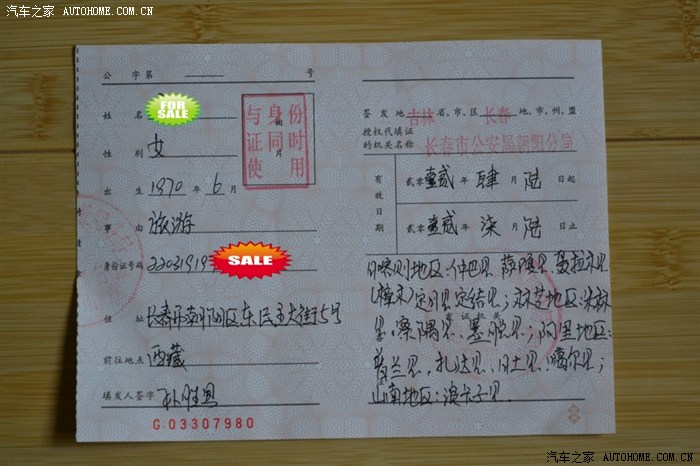 汽车之家 AUTOHOME.COM.CN
公 字第 号
姓 名 FOR SALE
性 别 女
出 生 1970 年 6 月
事 由 旅游
身份证号码 2203191 SALE
住 址 长春市朝阳区东民主大街5号
前往地点 西藏
填发人签字
G:03307980
与身份
证同时
使 用
片
签 发 地 吉林 省、市、区 长春 地、市、州、盟
授权代填证
的机关名称 长春市公安局朝阳分局
有效日期
贰零壹贰 年 肆 月 陆 日起
贰零壹贰 年 柒 月 陆 日止
日喀则地区:仲巴县、萨嘎县、聂拉木县
(樟木)定日县、定结县;林芝地区:米林
县、察隅县、墨脱县;阿里地区:
普兰县、扎达县、日土县、噶尔县;
山南地区:浪卡子县。
汽车之家 AUTOHOME.COM.CN